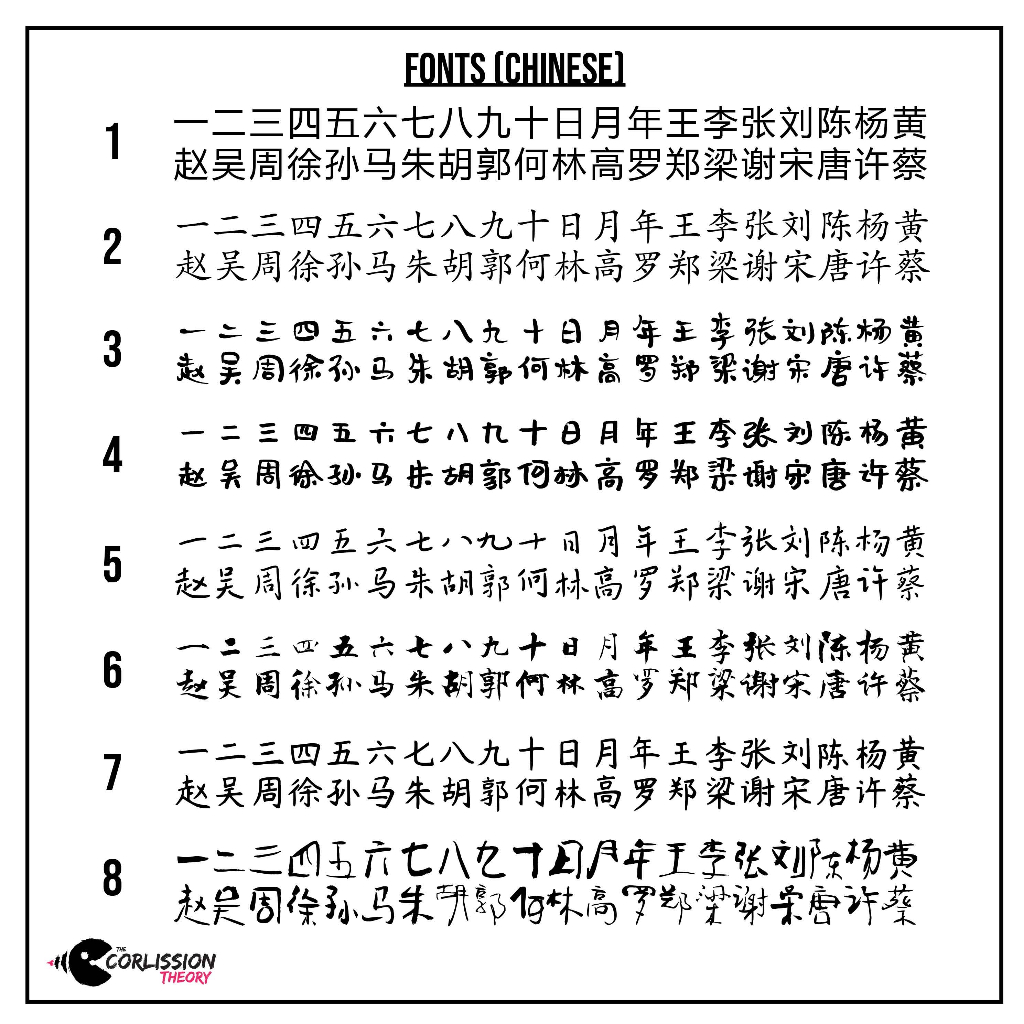 FONTS (CHINESE)
1
一二三四五六七八九十日月年王李张刘陈杨黄
赵吴周徐孙马朱胡郭何林高罗郑梁谢宋唐许蔡
2
一二三四五六七八九十日月年王李张刘陈杨黄
赵吴周徐孙马朱胡郭何林高罗郑梁谢宋唐许蔡
3
一二三四五六七八九十日月年王李张刘陈杨黄
赵吴周徐孙马朱胡郭何林高罗郑梁谢宋唐许蔡
4
一二三四五六七八九十日月年王李张刘陈杨黄
赵吴周徐孙马朱胡郭何林高罗郑梁谢宋唐许蔡
5
一二三四五六七八九十日月年王李张刘陈杨黄
赵吴周徐孙马朱胡郭何林高罗郑梁谢宋唐许蔡
6
一二三四五六七八九十日月年王李张刘陈杨黄
赵吴周徐孙马朱胡郭何林高罗郑梁谢宋唐许蔡
7
一二三四五六七八九十日月年王李张刘陈杨黄
赵吴周徐孙马朱胡郭何林高罗郑梁谢宋唐许蔡
8
一二三四五六七八九十日月年王李张刘陈杨黄
赵吴周徐孙马朱胡郭何林高罗郑梁谢宋唐许蔡
THE
CORLISSION
THEORY